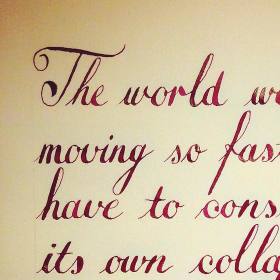 The world w
moving so fas
have to cons
its own colla